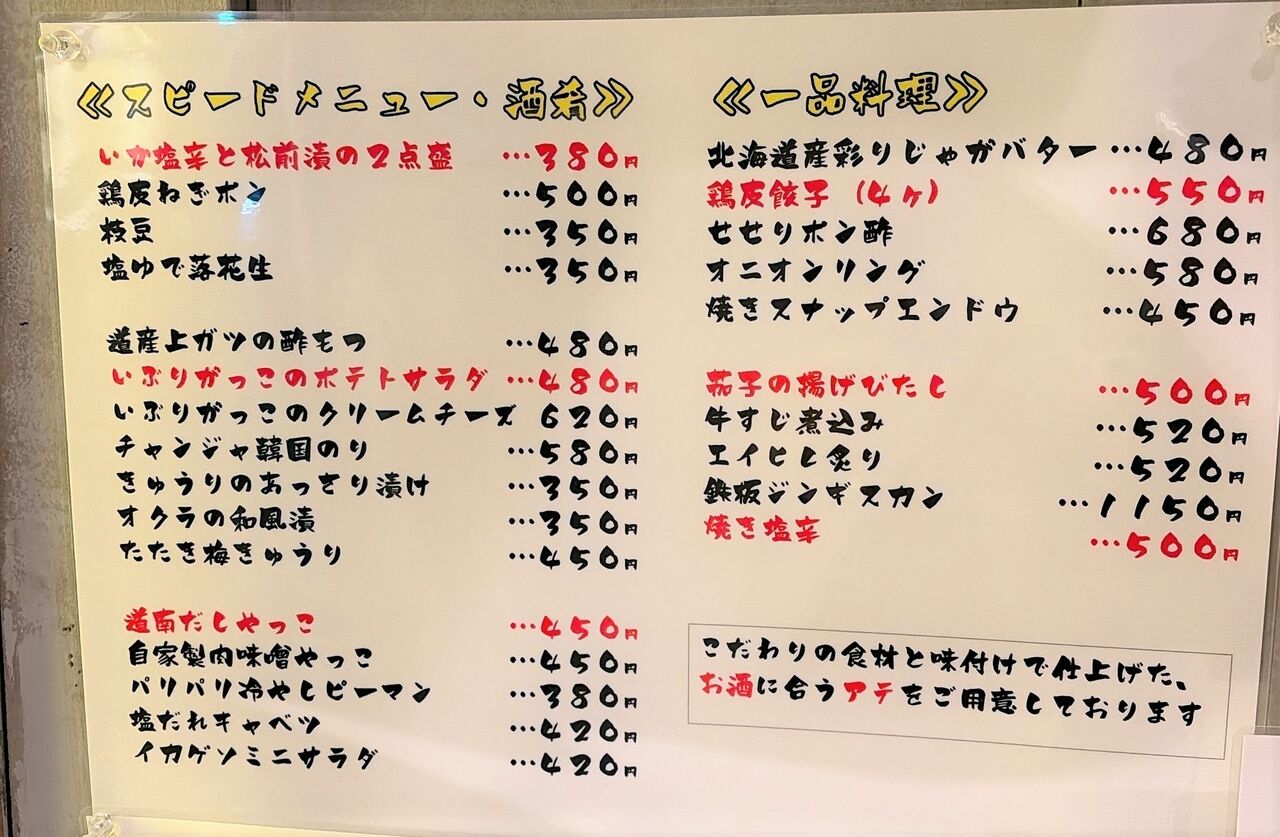 ≪スピードメニュー・酒肴≫
いか塩辛と松前漬の2点盛 …380円
鶏皮ねぎポン …500円
枝豆 …350円
塩ゆで落花生 …350円
道産上ガツの酢もつ …480円
いぶりがっこのポテトサラダ …480円
いぶりがっこのクリームチーズ 620円
チャンジャ韓国のり …580円
きゅうりのあっさり漬け …350円
オクラの和風漬 …350円
たたき梅きゅうり …450円
道南だしやっこ …450円
自家製肉味噌やっこ …450円
パリパリ冷やしピーマン …380円
塩だれキャベツ …420円
イカゲソミニサラダ …420円
≪一品料理≫
北海道産彩りじゃがバター …480円
鶏皮餃子(4ヶ) …550円
せせりポン酢 …680円
オニオンリング …580円
焼きスナップエンドウ …450円
茄子の揚げびたし …500円
牛すじ煮込み …520円
エイヒレ炙り …520円
鉄板ジンギスカン …1150円
焼き塩辛 …500円
こだわりの食材と味付けで仕上げた、
お酒に合うアテをご用意しております